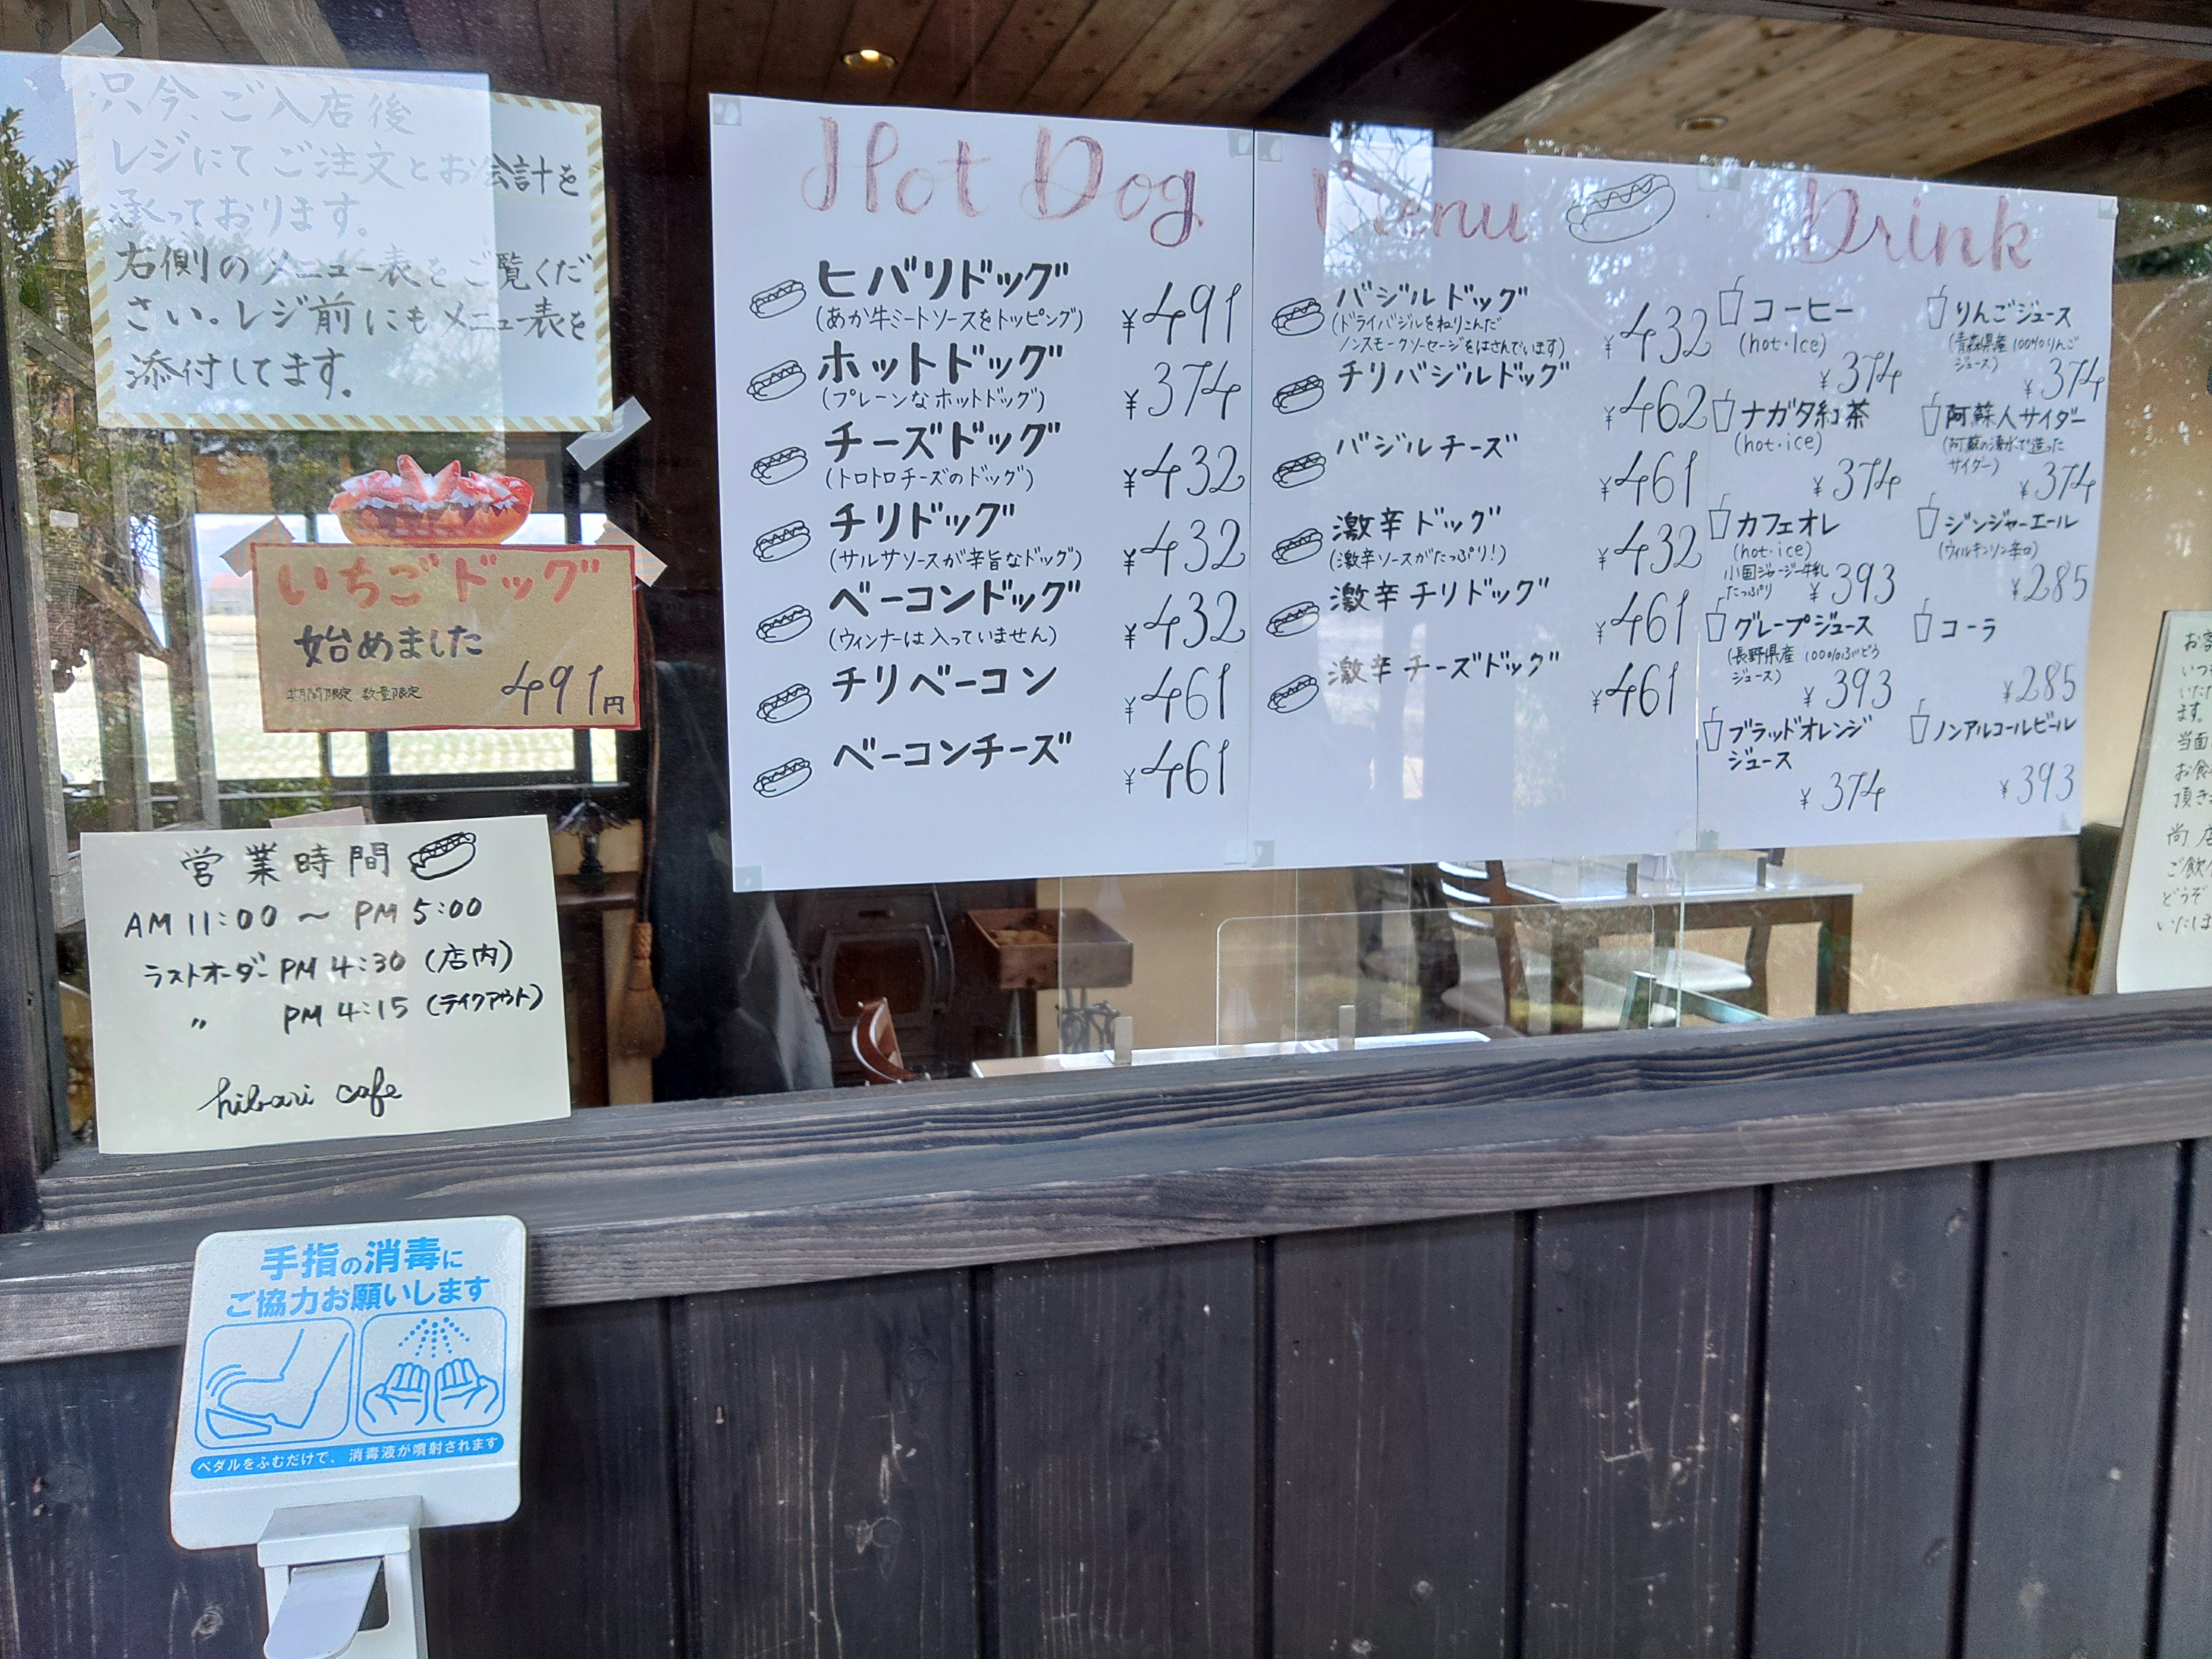 只今、ご入店後
レジにてご注文とお会計を
承っております。
右側のメニュー表をご覧くだ
さい。レジ前にもメニュー表を
添付してます。
いちごドッグ
始めました
期間限定 数量限定
491円
営業時間
AM 11:00 ～ PM 5:00
ラストオーダー PM 4:30 (店内)
〃 PM 4:15 (テイクアウト)
hibari cafe
Hot Dog Menu
ヒバリドッグ
(あか牛ミートソースをトッピング)
¥491
ホットドッグ
(プレーンなホットドッグ)
¥374
チーズドッグ
(トロトロチーズのドッグ)
¥432
チリドッグ
(サルサソースが辛旨なドッグ)
¥432
ベーコンドッグ
(ウィンナーは入っていません)
¥432
チリベーコン
¥461
ベーコンチーズ
¥461
バジルドッグ
(ドライバジルをねりこんだ
ノンスモークソーセージをはさんでいます)
¥432
チリバジルドッグ
¥462
バジルチーズ
¥461
激辛ドッグ
(激辛ソースがたっぷり!)
¥432
激辛チリドッグ
¥461
激辛チーズドッグ
¥461
Drink
コーヒー
(hot・Ice)
¥374
ナガタ紅茶
(hot・ice)
¥374
カフェオレ
(hot・ice)
小国ジャージー牛乳
たっぷり
¥393
グレープジュース
(長野県産 100%ぶどう
ジュース)
¥393
ブラッドオレンジ
ジュース
¥374
りんごジュース
(青森県産 100%りんご
ジュース)
¥374
阿蘇人サイダー
(阿蘇の湧水で造った
サイダー)
¥374
ジンジャーエール
(ウィルキンソン辛口)
¥285
コーラ
¥285
ノンアルコールビール
¥393
いた
ます。
当面
お食
頂き
尚、店
ご飲
どうぞ
いたしま
手指の消毒に
ご協力お願いします
ペダルをふむだけで、消毒液が噴射されます